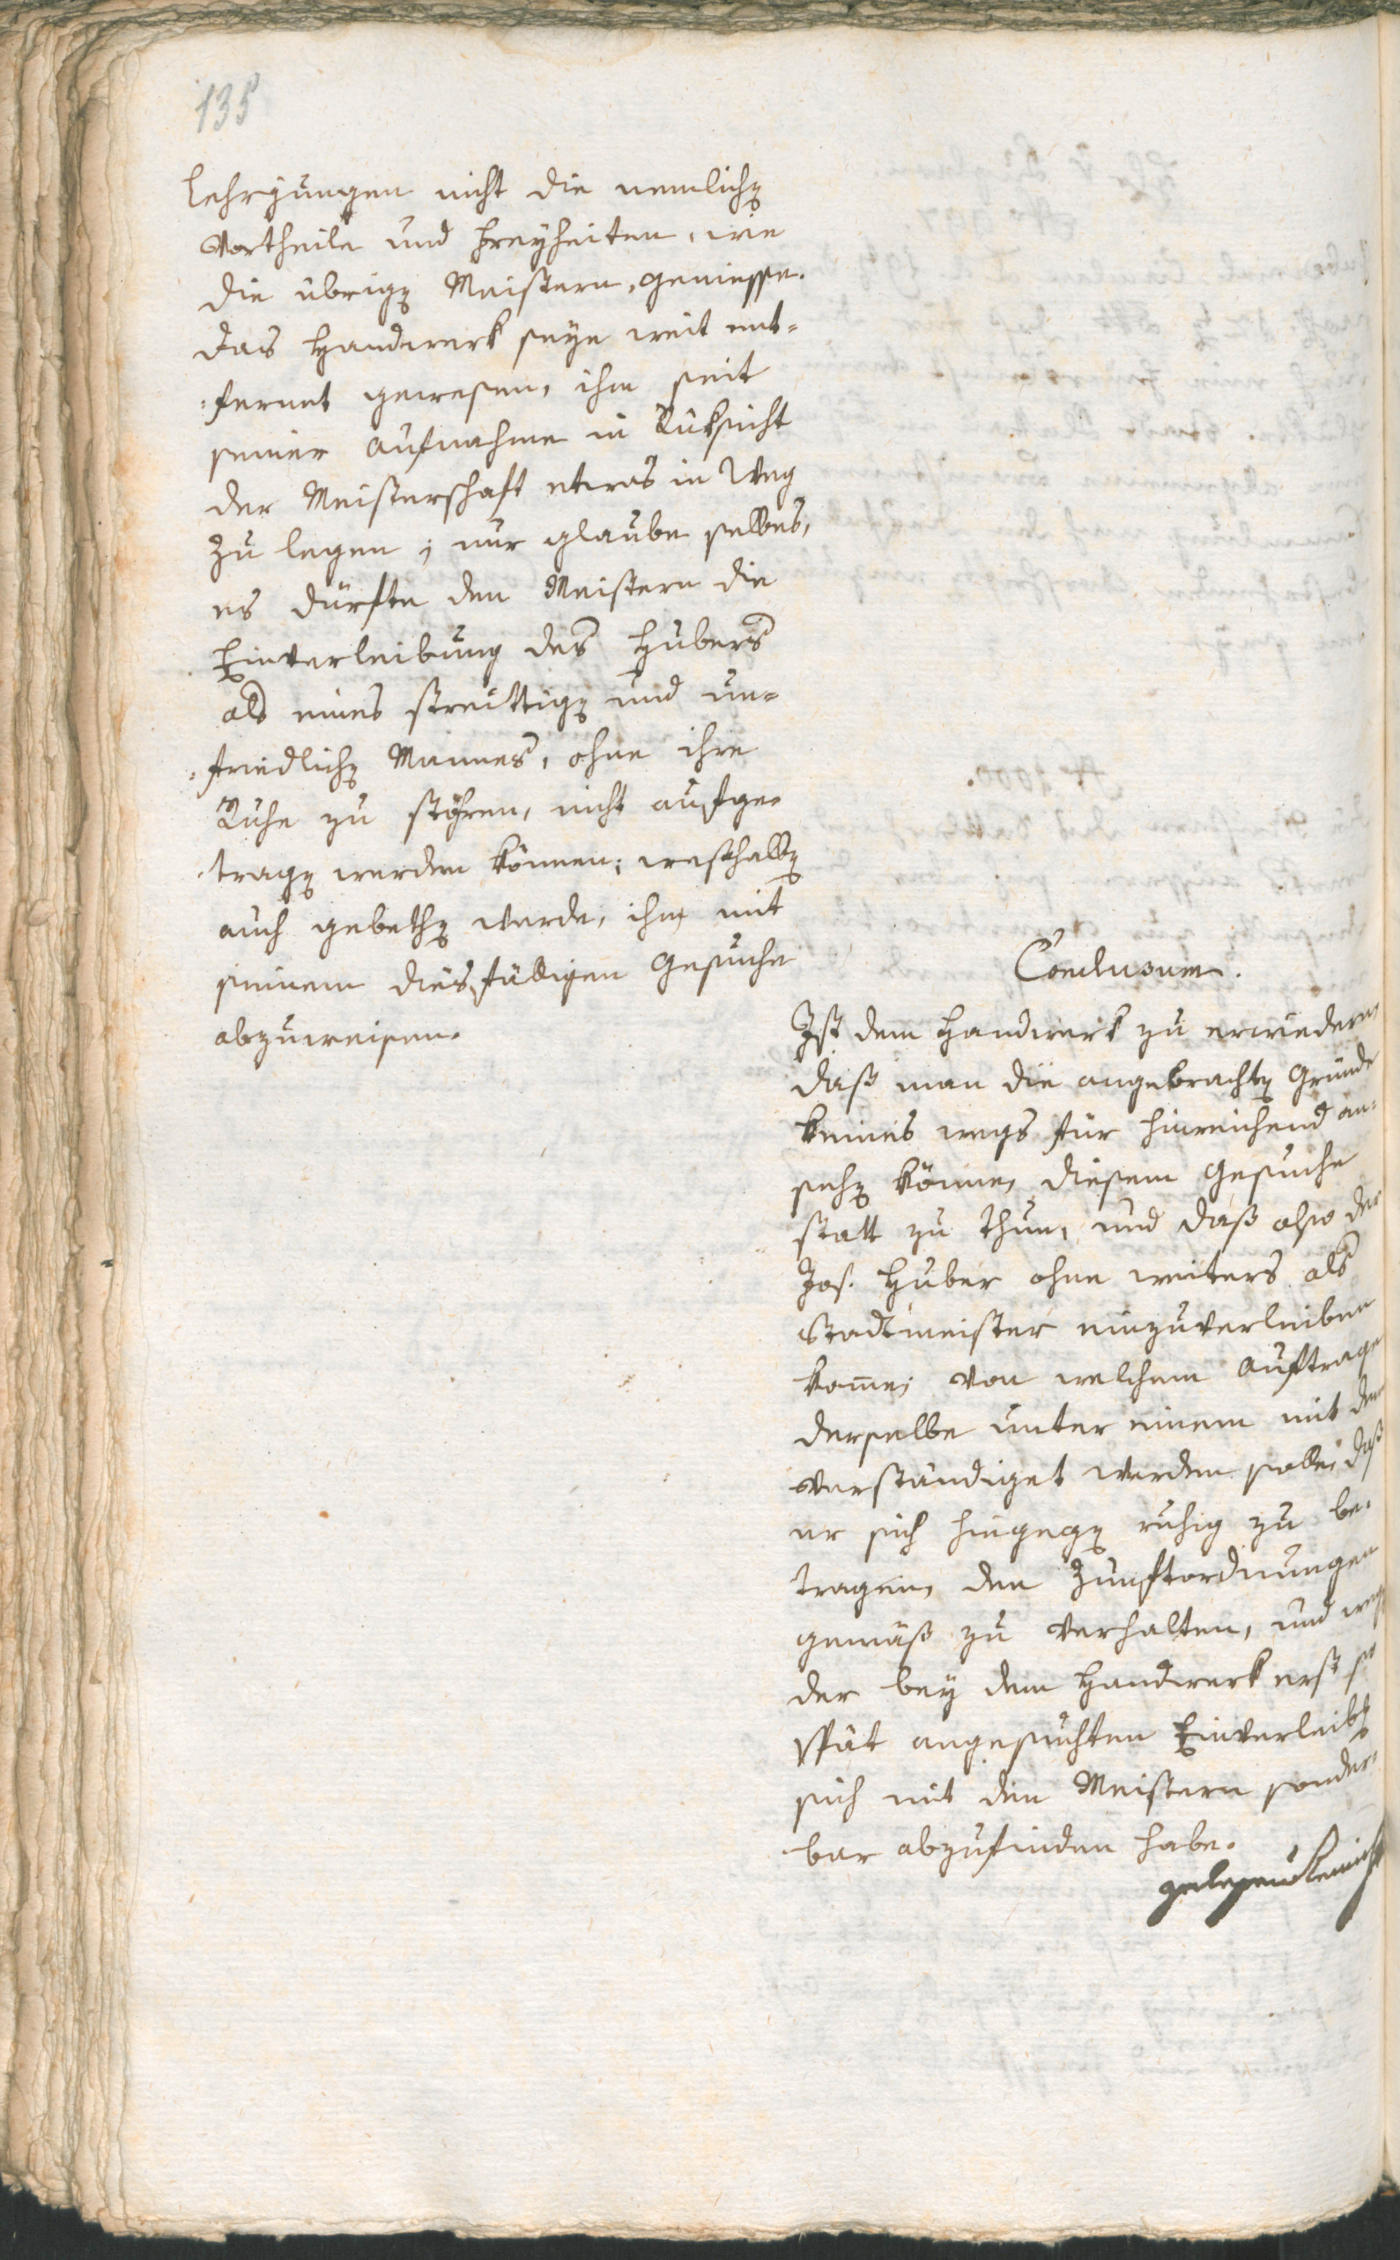 135
Lehrjungen nicht die nemliche
Vortheile und Freyheiten, wie
die übrige Meistern, geniesse.
das Handwerk seye weit ent=
=fernet gewesen, ihm seit
seiner Aufnahme in Rüksicht
der Meisterschaft etwas in Weg
zu legen; nur glaube selbes,
es dürfte den Meistern die
Einverleibung des Hubers
als eines streittigen und un=
=friedlichen Mannes, ohne ihre
Ruhe zu stöhren, nicht aufge=
tragen werden können; westhalben
auch gebethen werde, ihn mit
seinem diesfälligen Gesuche
abzuweisen.
Conclusum.
Ist dem Handwerk zu erwiedern
daß man die angebrachten Gründe
keines wegs für hinreichend an=
sehen könne, diesem Gesuche
statt zu thun, und daß also der
Jos. Huber ohne weiters als
Stadtmeister einzuverleiben
kome; von welchem Auftrage
derselbe unter einem mit dem
verständiget werden solle, daß
er sich hingegen ruhig zu be=
tragen, den Zunftordnungen
gemäß zu verhalten, und wegen
der bey dem Handwerk erst so
spät angesuchten Einverleibung
sich mit den Meistern sonder=
bar abzufinden habe.